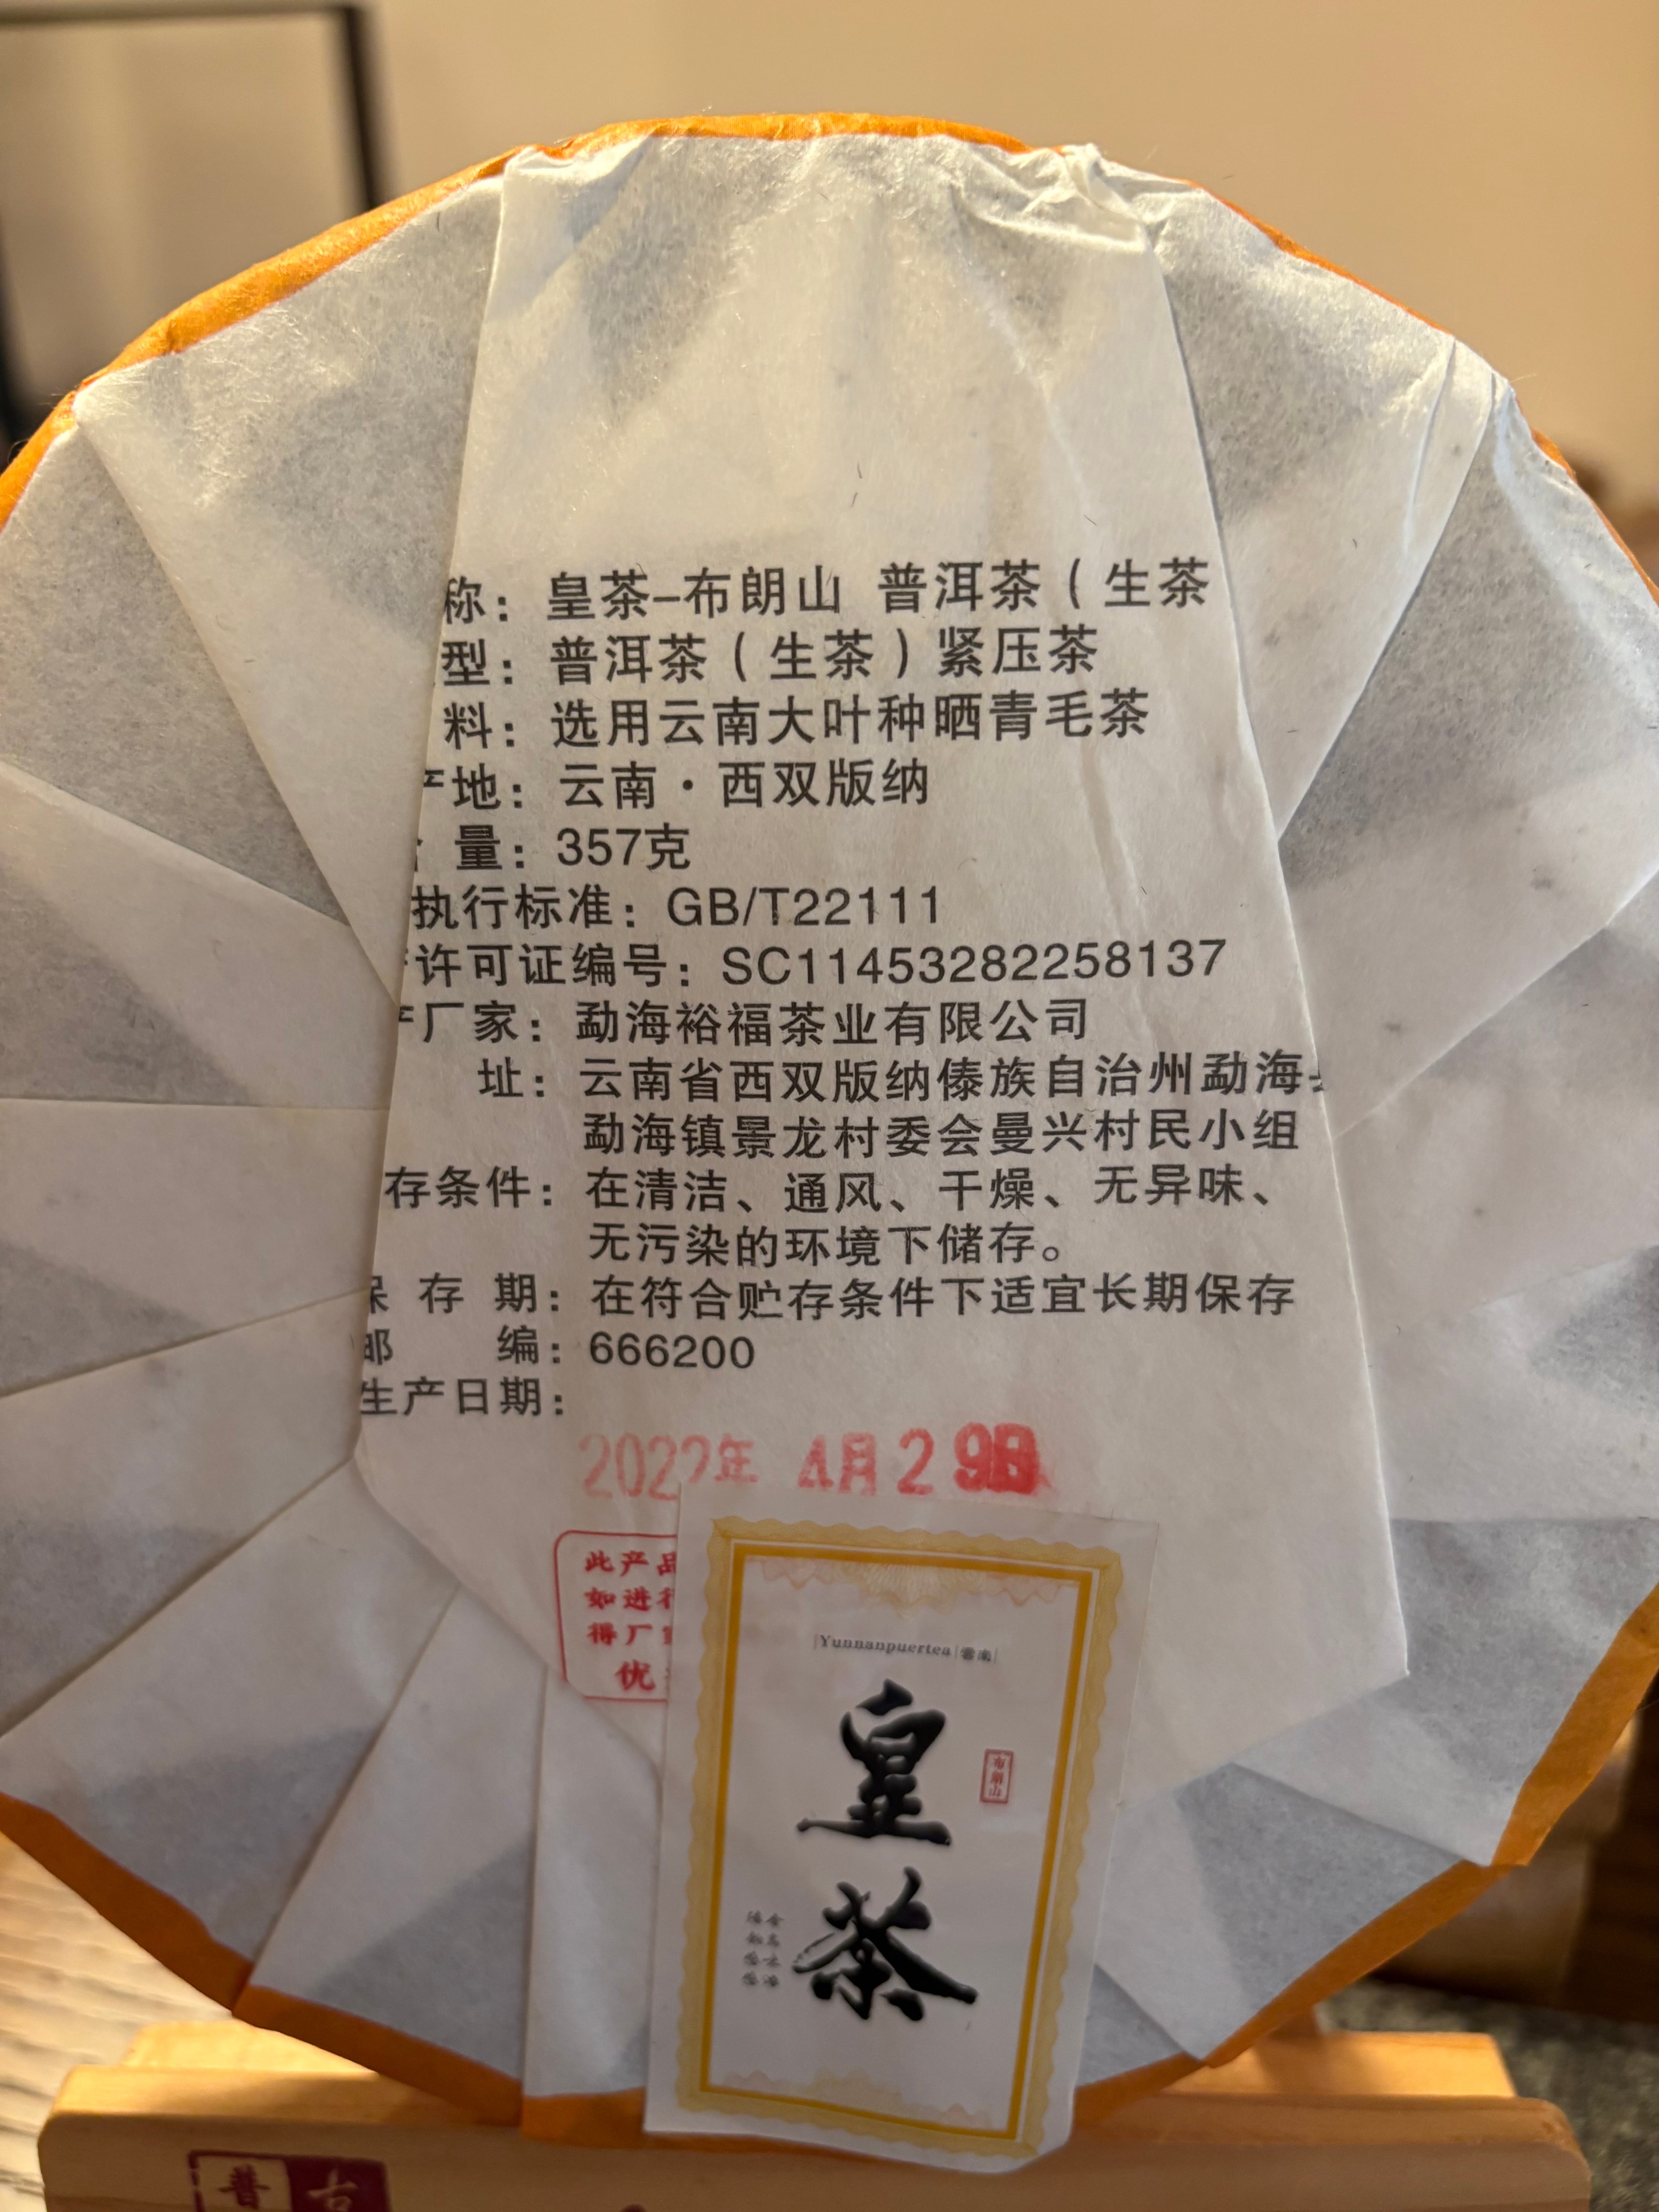 称：皇茶-布朗山 普洱茶（生茶
型：普洱茶（生茶）紧压茶
料：选用云南大叶种晒青毛茶
产地：云南·西双版纳
量：357克
执行标准：GB/T22111
许可证编号：SC11453282258137
厂家：勐海裕福茶业有限公司
址：云南省西双版纳傣族自治州勐海
勐海镇景龙村委会曼兴村民小组
存条件：在清洁、通风、干燥、无异味、
无污染的环境下储存。
保 存 期：在符合贮存条件下适宜长期保存
邮 编：666200
生产日期：
2022年 4月29日
此产品
如进行
得厂
优
|Yunnanpuertea|雲南|
皇茶
布朗山
普 古